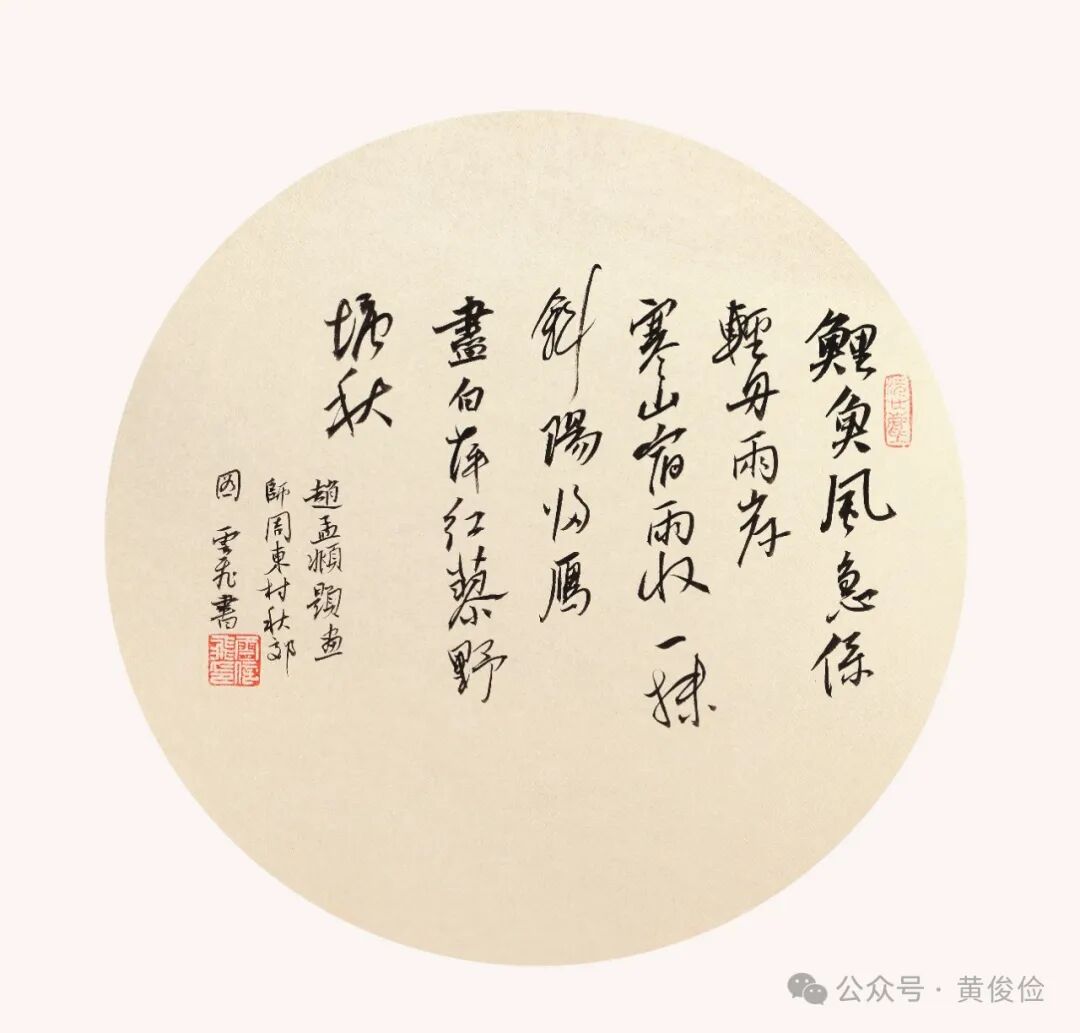 鯉魚風急係
輕舟雨岸
寒山宿雨收一抹
斜陽归雁
盡白萍红蓼野
塘秋
趙孟頫題畫
師周東村秋郊
图 雲飛書
公众号 · 黄俊俭